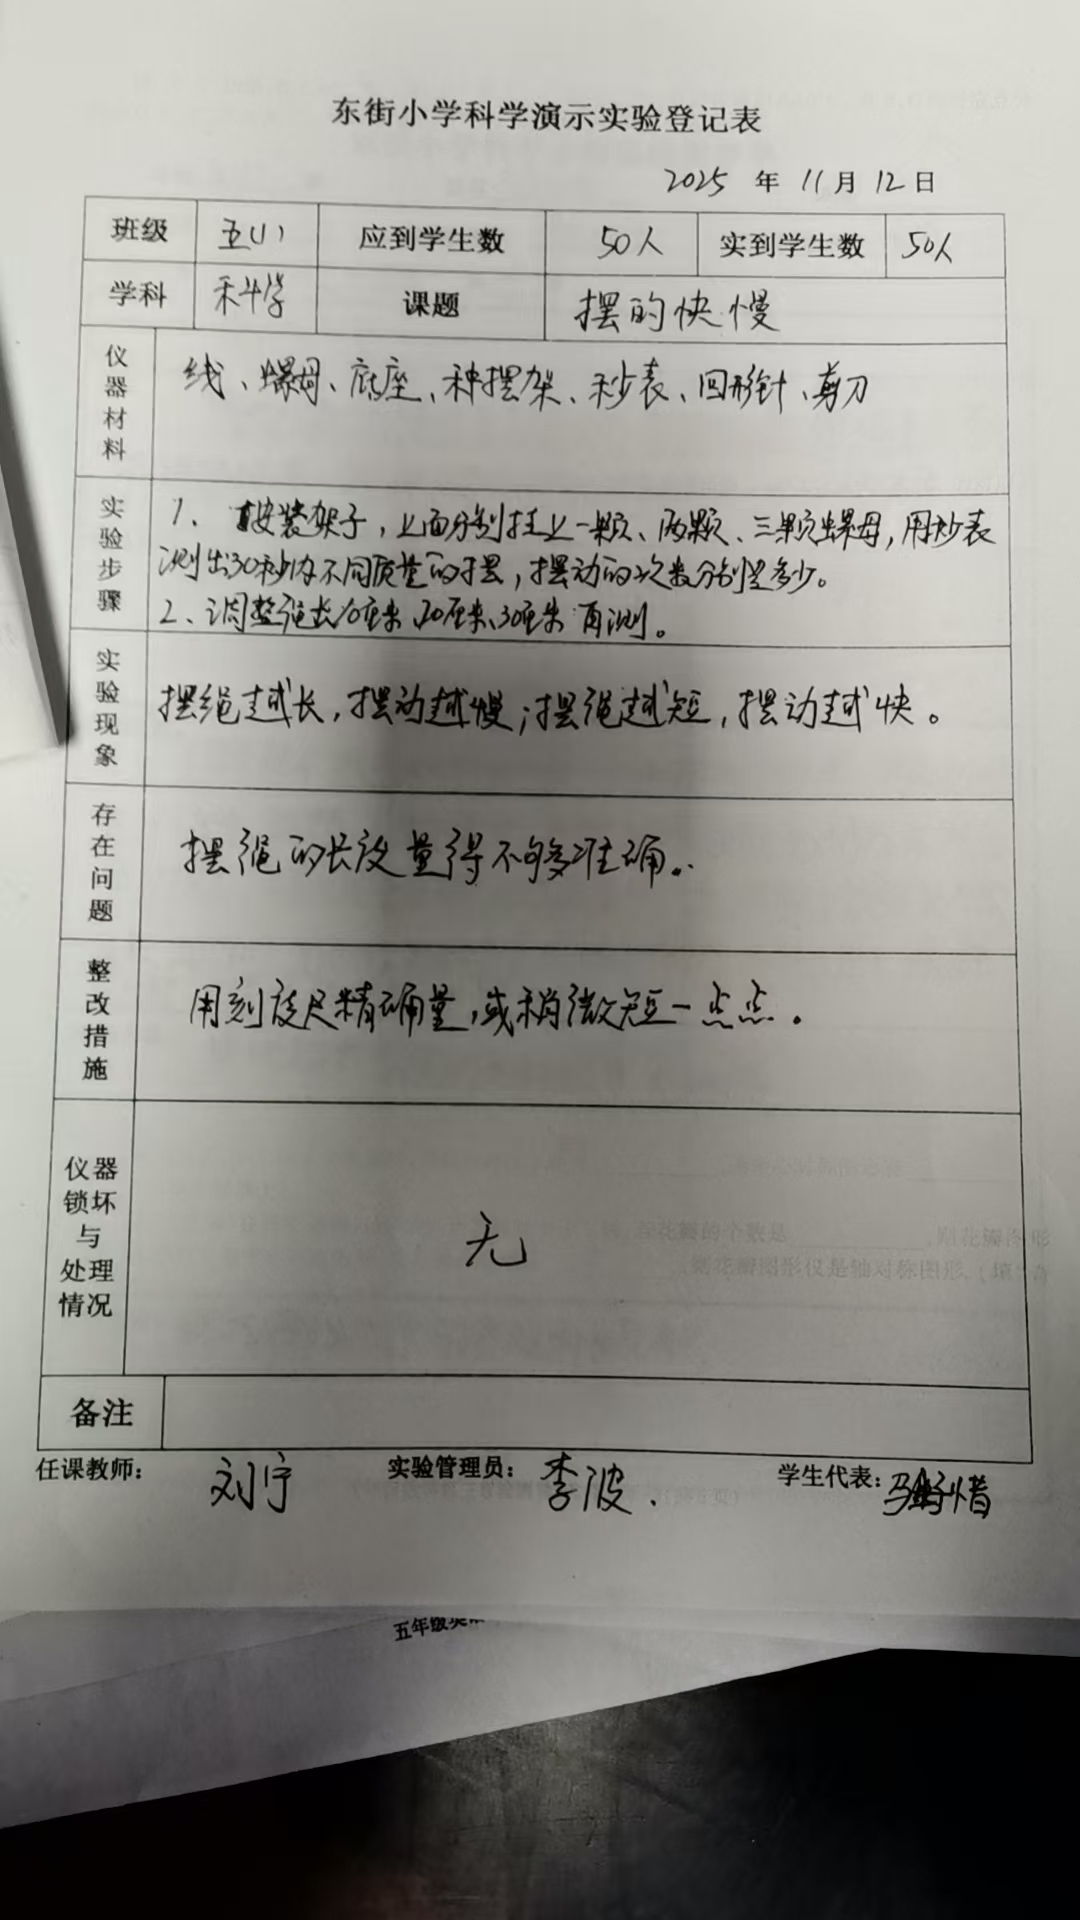 东街小学科学演示实验登记表
2025 年 11月 12日
班级 五(1) 应到学生数 50人 实到学生数 50人
学科 科学 课题 摆的快慢
仪器材料 线、螺母、底座、种摆架、秒表、回形针、剪刀
实验步骤 1、按装架子，上面分别挂上一颗、两颗、三颗螺母，用秒表
测出30秒内不同质量的摆，摆动的次数分别是多少。
2、调整绳长10厘米、20厘米、30厘米再测。
实验现象 摆绳越长，摆动越慢；摆绳越短，摆动越快。
存在问题 摆绳的长度量得不够准确。
整改措施 用刻度尺精确量，或稍微短一点点。
仪器
锁坏
与
处理
情况 无
备注
任课教师： 刘宁 实验管理员： 李波. 学生代表： 马
五年级